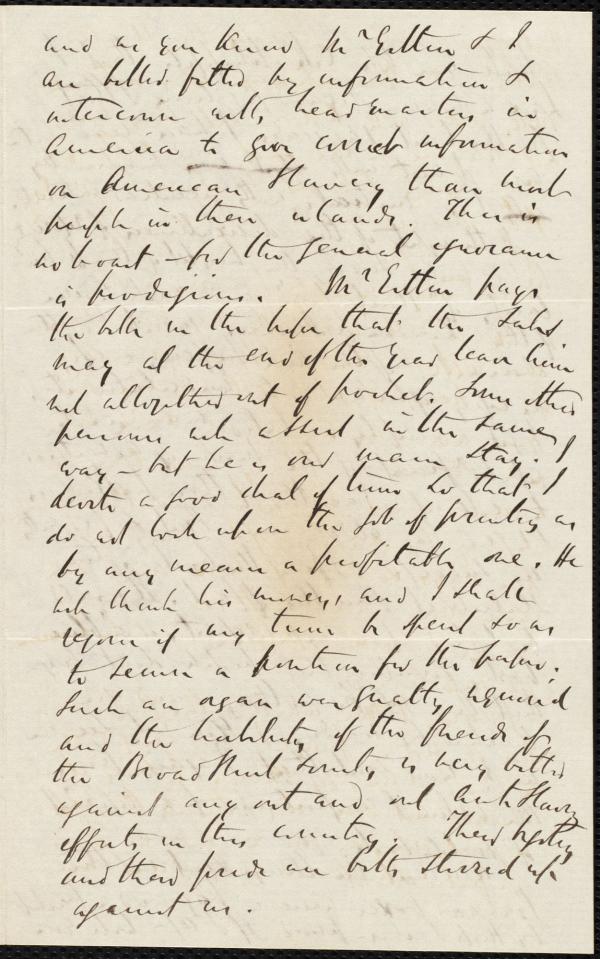 and as you know Mr Estlin & I
are better fitted by information &
intercourse with headquarters in
America to give correct information
on American Slavery than most
people in these islands. This is
no boast - for the general ignorance
is prodigious. Mr Estlin pays
the bills in the hope that the Sales
may at the end of the year leave him
not altogether out of pocket. Some other
persons will assist in the same
way - but he is our main stay. I
devote a good deal of time so that I
do not look upon the job of printing as
by any means a profitable one. He
will thank his money, and I shall
rejoice if my time be spent so as
to secure a position for the paper.
Such an organ was greatly required
and the hostility of the friends of
the Broad Street Society is very bitter
against any out and out Anti Slavery
efforts in this country. Their bigotry
and their pride are both stirred up
against us.